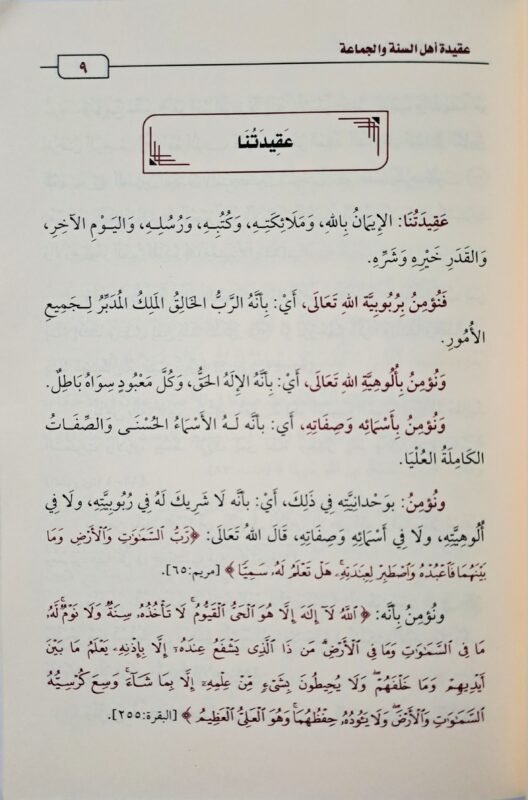 عقيدة أهل السنة والجماعة
٩
عَقِيدَتُنَا
عَقِيدَتُنَا: الإِيمَانُ بِاللهِ، وَمَلَائِكَتِهِ، وَكُتُبِهِ، وَرُسُلِهِ، وَاليَوْمِ الآخِرِ،
وَالقَدَرِ خَيْرِهِ وَشَرِّهِ.
فَنُؤْمِنُ بِرُبُوبِيَّةِ اللهِ تَعَالَى، أَيْ: بِأَنَّهُ الرَّبُّ الخَالِقُ المَلِكُ المُدَبِّرُ لِـجَمِيعِ
الأُمُورِ.
وَنُؤْمِنُ بِأُلُوهِيَّةِ اللهِ تَعَالَى، أَيْ: بِأَنَّهُ الإِلَهُ الحَقُّ، وَكُلُّ مَعْبُودٍ سِوَاهُ بَاطِلٌ.
وَنُؤْمِنُ بِأَسْمَائِهِ وَصِفَاتِهِ، أَي: بأنَّه لَـهُ الأَسْمَاءُ الحُسْنَـى وَالصِّفَـاتُ
الكَامِلَةُ العُلْيَا.
ونُؤمِنُ: بوَحْدَانِيَّتِهِ فِي ذَلِكَ، أَيْ: بأنَّه لَا شَرِيكَ لَهُ فِي رُبُوبِيَّتِهِ، ولَا فِي
أُلُوهِيَّتِهِ، ولَا فِي أَسْمَائِهِ وَصِفَاتِهِ، قَالَ اللهُ تَعَالَى: ﴿رَبُّ ٱلسَّمَٰوَٰتِ وَٱلۡأَرۡضِ وَمَا
بَيۡنَهُمَا فَٱعۡبُدۡهُ وَٱصۡطَبِرۡ لِعِبَٰدَتِهِۦۚ هَلۡ تَعۡلَمُ لَهُۥ سَمِيّٗا﴾ [مريم:٦٥].
ونُؤمِنُ بأنَّه: ﴿ٱللَّهُ لَآ إِلَٰهَ إِلَّا هُوَ ٱلۡحَيُّ ٱلۡقَيُّومُۚ لَا تَأۡخُذُهُۥ سِنَةٞ وَلَا نَوۡمٞۚ لَّهُۥ
مَا فِي ٱلسَّمَٰوَٰتِ وَمَا فِي ٱلۡأَرۡضِۗ مَن ذَا ٱلَّذِي يَشۡفَعُ عِندَهُۥٓ إِلَّا بِإِذۡنِهِۦۚ يَعۡلَمُ مَا بَيۡنَ
أَيۡدِيهِمۡ وَمَا خَلۡفَهُمۡۖ وَلَا يُحِيطُونَ بِشَيۡءٖ مِّنۡ عِلۡمِهِۦٓ إِلَّا بِمَا شَآءَۚ وَسِعَ كُرۡسِيُّهُ
ٱلسَّمَٰوَٰتِ وَٱلۡأَرۡضَۖ وَلَا يَـُٔودُهُۥ حِفۡظُهُمَاۚ وَهُوَ ٱلۡعَلِيُّ ٱلۡعَظِيمُ﴾ [البقرة:٢٥٥].